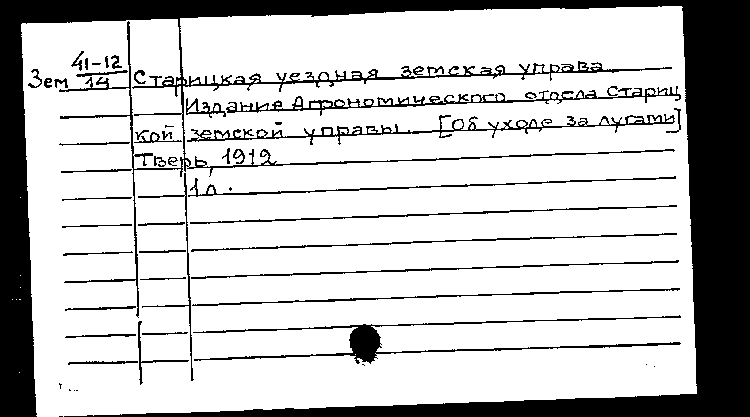 41-12
Зем 14 Старицкая уездная земская управа
Издание Агрономического отдела Стариц
кой земской управы. [Об уходе за лугами]
Тверь, 1912
1 л.